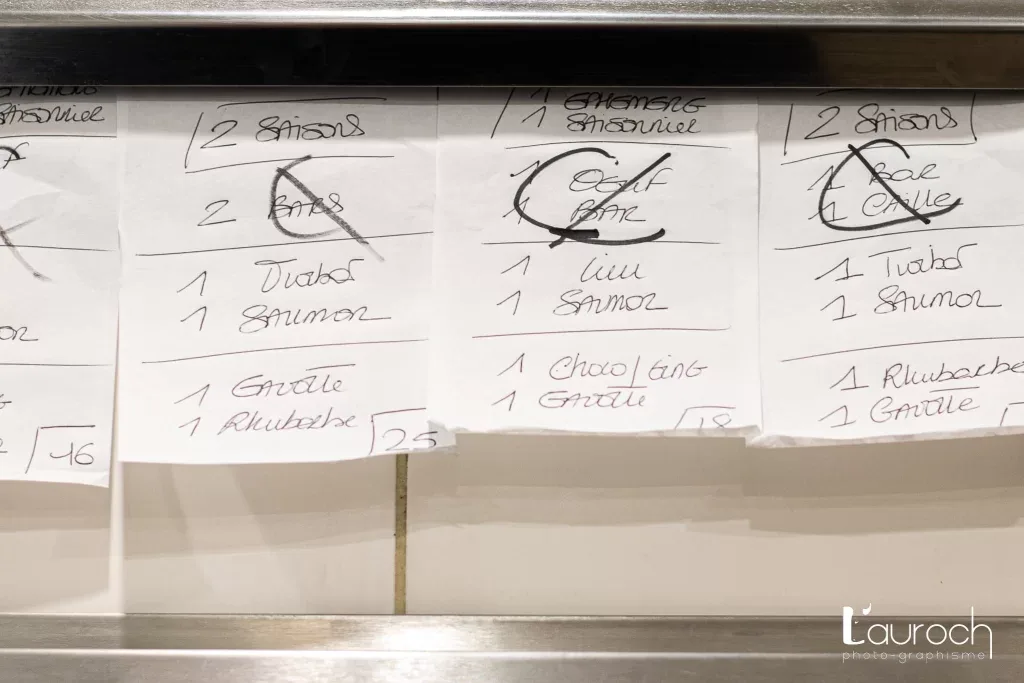 SAISONNIER
16
2 SAISONS
2 BARS
1 Turbot
1 SAUMON
1 GAVOTTE
1 Rhubarbe
25
1 EPHEMERE
1 SAISONNIER
1 OEUF
1 BAR
1 Lieu
1 SAUMON
1 CHOCO/GING
1 GAVOTTE
18
2 SAISONS
1 BAR
1 CAILLE
1 Turbot
1 SAUMON
1 Rhubarbe
1 GAVOTTE
Lauroch
photo-graphisme